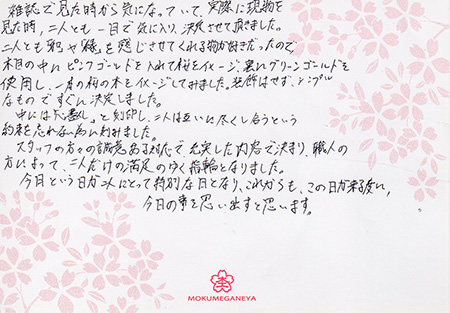 雑誌で見た時から気になっていて実際に現物を
見た時、二人とも一目で気に入り、決定させて頂きました。
二人とも和や桜を感じさせてくれる物が好きだったので
木目の中にピンクゴールドを入れて桜をイメージ、裏にグリーンゴールドを
使用し、一本の桜の木をイメージしてみました。装飾はせず、シンプル
なものですぐに決定しました。
中には、と刻印し、二人は互いに尽くし合うという
約束を忘れない為に刻みました。
スタッフの方々の誠意ある対応で、充実した内容で決まり、職人の
方によって、二人だけの満足のゆく指輪となりました。
今日という日が二人にとって特別な日となり、これからも、この日が来る度に、
今日の事を思い出すと思います。
MOKUMEGANEYA